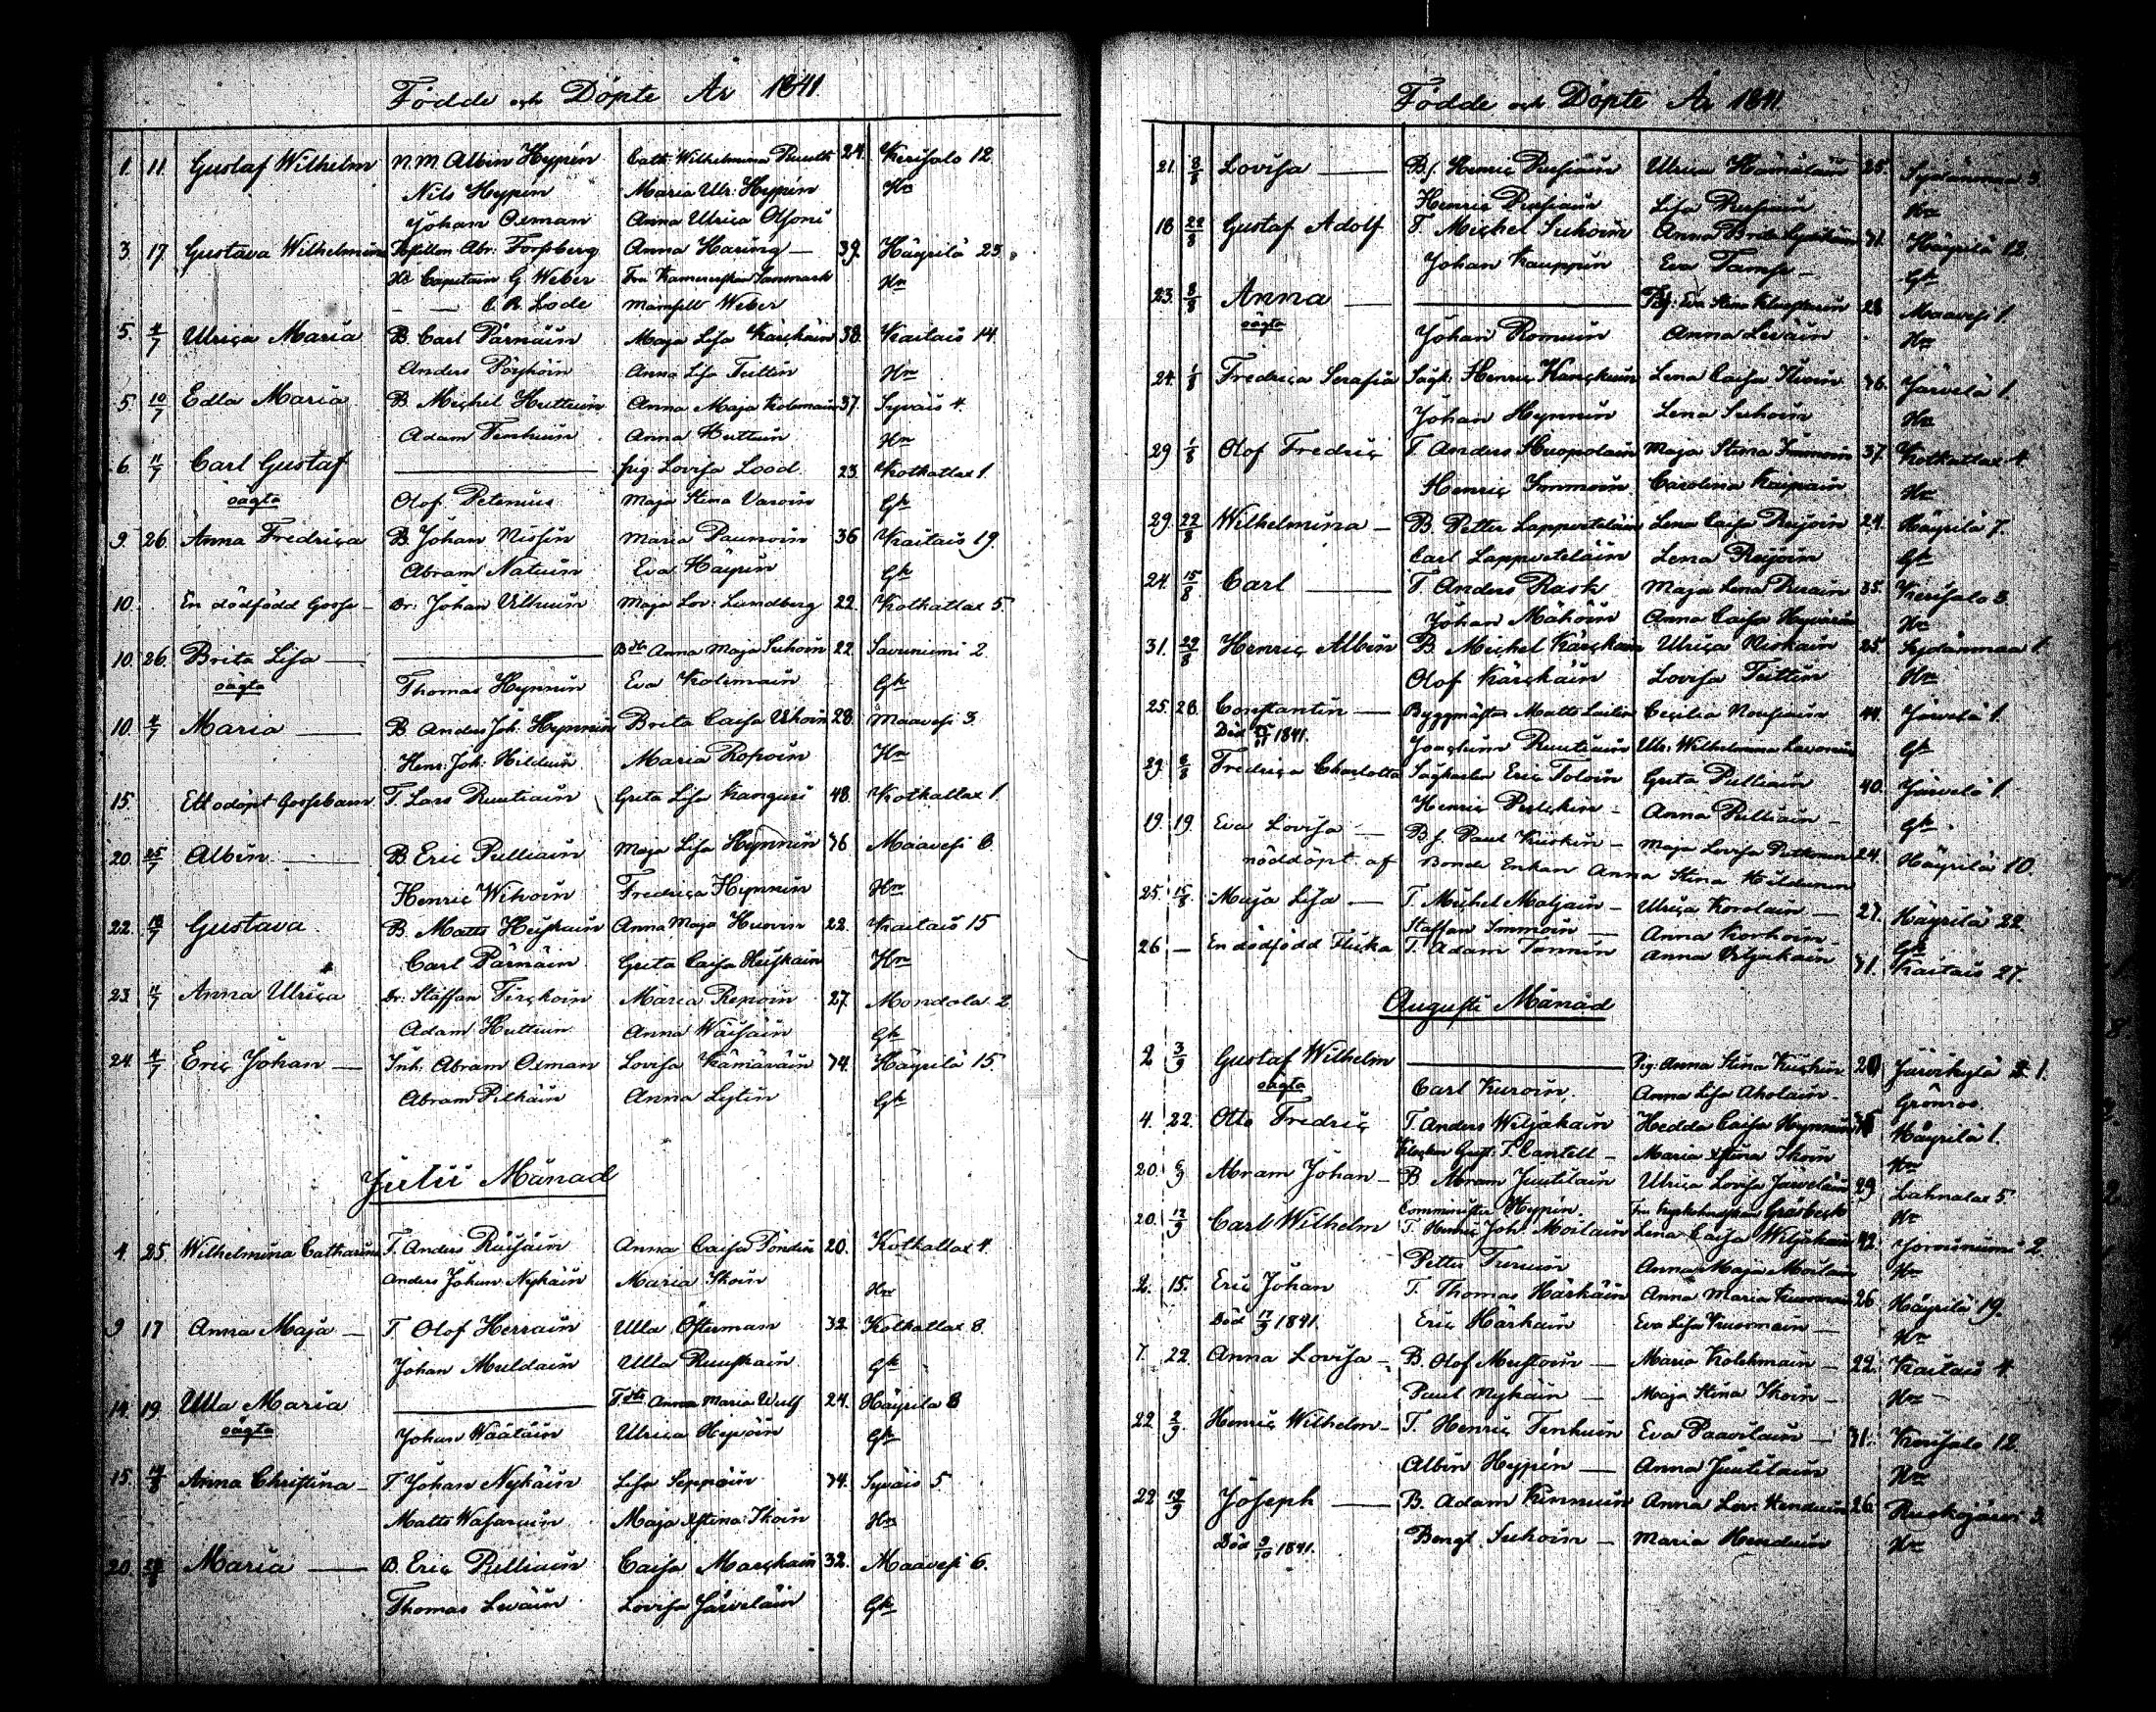 Födde och Döpte År 1841.
1. 11. Gustaf Wilhelm N. M. Albin Hypén Cath: Wilhelmina 24. Kerisalo 12.
Nils Hypén Maria Ulr: Hypén Hm
Johan Oxman Anna Ulrica
3. 17. Gustava Wilhelmina Postillon Abr: Forssberg Anna Haring — 39. Häyrilä 23.
Hr Capitain G. Weber Fru Hm
— — C. R. Lode Mamsell Weber
5. 4/7 Ulrica Maria B. Carl Pärnäin Maja Lisa Kärckäin 38. Kaitais 14.
Anders Pöyhöin Anna Lisa Tuttin Hm
5. 10/7 Edla Maria B. Michel Huttuin Anna Maja Kolemain 37. Syväis 4.
Adam Tenhuin Anna Huttuin Hm
6. 11/7 Carl Gustaf — Pig. Lovisa Lood. 23. Kotkatlax 1.
oägta Olof Petenius Maja Stina Varoin Gk
9. 26. Anna Fredrica B. Johan Nissin Maria Paunoin 36 Kaitais 19.
Abram Natuin Eva Häyrin Gk
10. En dödfödd Gosse — Dr: Johan Ulkuin Maja Lov: Lundberg 22. Kotkatlax 5.
10. 26. Brita Lisa — — Bdtr Anna Maja Suhoin 22. Savuniemi 2.
oägta Thomas Hynnin Eva Kolemain Gk
10. 4/7 Maria — B. Anders Joh. Hynnin Brita Caisa Ukoin 28. Maavesi 3.
Henr: Joh: Hilduin Maria Ropoin Hm
15. Ett odöpt Gossebarn T. Lars Ruutiain Greta Lisa Kangus 48. Kotkatlax 1.
20. 25/7 Albin — B. Eric Pulliain Maja Lisa Hynnin 36 Maavesi 8.
Henric Wihoin Fredrica Hynnin Hm
22. 18/7 Gustava B. Matts Heiskain Anna Maja Huovin 22. Kaitais 15
Carl Pärnäin Greta Caisa Heiskain Hm
23. 11/7 Anna Ulrica Dr: Staffan Tirckoin Maria Repoin 27. Mondola 2.
Adam Huttuin Anna Wäisäin Gk
24. 4/7 Eric Johan — Inh: Abram Oxman Lovisa Kämäräin 34. Häyrilä 15.
Abram Pitkäin Anna Lytin Gk
Julii Månad
4. 25. Wilhelmina Catharina T. Anders Räisäin Anna Caisa Pöndin 20. Kotkatlax 4.
Anders Johan Nykäin Maria Ikoin Hm
9 17 Anna Maja — T. Olof Herrain Ulla Österman 32. Kotkatlax 8.
Johan Muldain Ulla Ruuskain Gk
14. 19. Ulla Maria — Tdtr Anna Maria Wulf 24. Häyrilä 8
oägta Johan Wäätäin Ulrica Hypöin Gk
15. Anna Christina — T. Johan Nykäin Lisa Seppäin 34. Syväis 5.
Matts Wasarain Maja Xstina Ikoin Hm
20. Maria — B. Eric Pulliain Caisa Marckain 32. Maavesi 6.
Thomas Leväin Lovisa Järveläin Gk
Födde och Döpte År 1841.
21. 8/8 Lovisa — Bs. Henric Pusiain Ulrica Hämäläin 25. Sydänmaa 3.
Henric Pusiain Lisa Pusiain Hm
18 22/8 Gustaf Adolf T. Michel Suhoin Anna 31. Häyrilä 12.
Johan Kauppin Eva Tamp — Gk
23. 8/8 Anna — — Pig: Eva Stina 28 Maavesi 1.
oägta Johan Romuin Anna Leväin Hm
24. 1/8 Fredrica Serafia Sågk: Henric Kanckuin Lena Caisa 36. Järvelä 1.
Johan Hynnin Lena Suhoin Hm
29 1/8 Olof Fredric T. Anders Huopolain Maja Stina Immoin 37. Kotkatlax 4.
Henric Immoin Carolina Kaipain Hm
29. 22/8 Wilhelmina — B. Petter Lappveteläin Lena Caisa Reijoin 24. Häyrilä 7.
Carl Lappveteläin Lena Reijoin Gk
24. 15/8 Carl — T. Anders Rask Maja Lena Purain 35. Kerisalo 3.
Johan Mähöin Anna Caisa Hm
31. 22/8 Henric Albin B. Michel Kärckäin Ulrica Viskain 25 Sydänmaa 1
Olof Kärckäin Lovisa Tuttin Hm
25. 28. Constantin — Byggmästar Matts Laitin Cecilia Nousiain 44. Järvelä 1.
Död 1841. Joachim Ruutiain Ulr: Wilhelmina Gk
29. 8/8 Fredrica Charlotta Sågkarlen Eric Toloin Greta Pulliain 40. Järvelä 1.
Henric Pulckin — Anna Pulliain — Gk
19. 19. Eva Lovisa — Bs. Paul Kuiskin — Maja Lovisa Putkonen 24. Häyrilä 10.
nöddöpt af Bonde Enkan Anna Stina Hildunen
25. 15/8 Maja Lisa — T. Michel Maljain — Ulrica Korolain — 27. Häyrilä 22
Staffan Immoin — Anna Korhoin — Gk
26 — En dödfödd Flicka T. Adam Tannin Anna Viljakain 31. Kaitais 27.
Augusti Månad
2 3/9 Gustaf Wilhelm — Pig: Anna Stina Kuickin 20 Järvikylä 1.
oägta Carl Kuroin. Anna Lisa Aholain — Grönroo.
4. 22. Otto Fredric T. Anders Wiljakain Hedda Caisa Hynnin Häyrilä 1.
Klockar Gust. T. Cantell — Maria Xstina Ikoin Hm
20. 6/9 Abram Johan — B. Abram Juutilain Ulrica Lovisa Järveläin 29 Lahnalax 5
Comminister Hypén. Fru Gråsbeck Hm
20. 12/9 Carl Wilhelm T. Henric Joh: Moilain Lena Caisa Wiljakain 42. Joroisniemi 2.
Petter Turuin Anna Maja Moilain Hm
2. 15. Eric Johan T. Thomas Härkäin Anna Maria Kuosmain 26 Häyrilä 19.
Död 17/9 1841. Eric Härkäin Eva Lisa Kuosmain — Hm
7. 22. Anna Lovisa — B. Olof Mustoin — Maria Kolehmain — 22. Kaitais 4.
Paul Nykäin — Maja Stina Ikoin — Hm
22 2/9 Henric Wilhelm — T. Henric Tenhuin Eva Paavilain — 31. Kerisalo 12.
Albin Hypén — Anna Juutilain Hm
22 19/9 Joseph — B. Adam Kinnuin Anna Lov: Henduin 26. Ruskojärvi 3.
Död 3/10 1841. Bengt Suhoin — Maria Henduin Hm